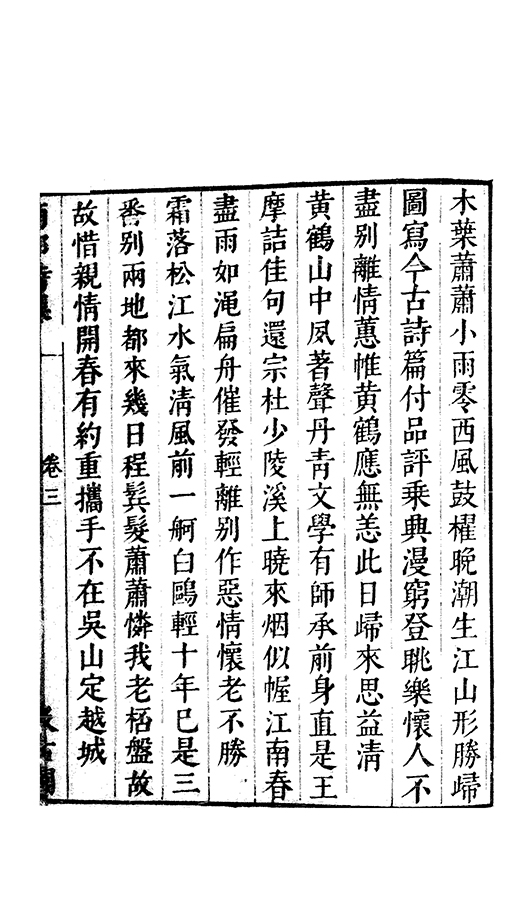 木葉蕭蕭小雨零西風鼓櫂晚潮生江山形勝歸
圖寫今古詩篇付品評乘興漫窮登眺樂懷人不
盡别離情蕙帷黄鶴應無恙此日歸來思益清
黄鶴山中夙著聲丹青文學有師承前身直是王
摩詰佳句還宗杜少陵溪上曉來烟似幄江南春
盡雨如澠扁舟催發輕離别作惡情懷老不勝
霜落松江水氣清風前一舸白鷗輕十年已是三
番别兩地都來幾日程鬂髮蕭蕭憐我老桮盤故
故惜親情開春有約重攜手不在吳山定越城
卷三